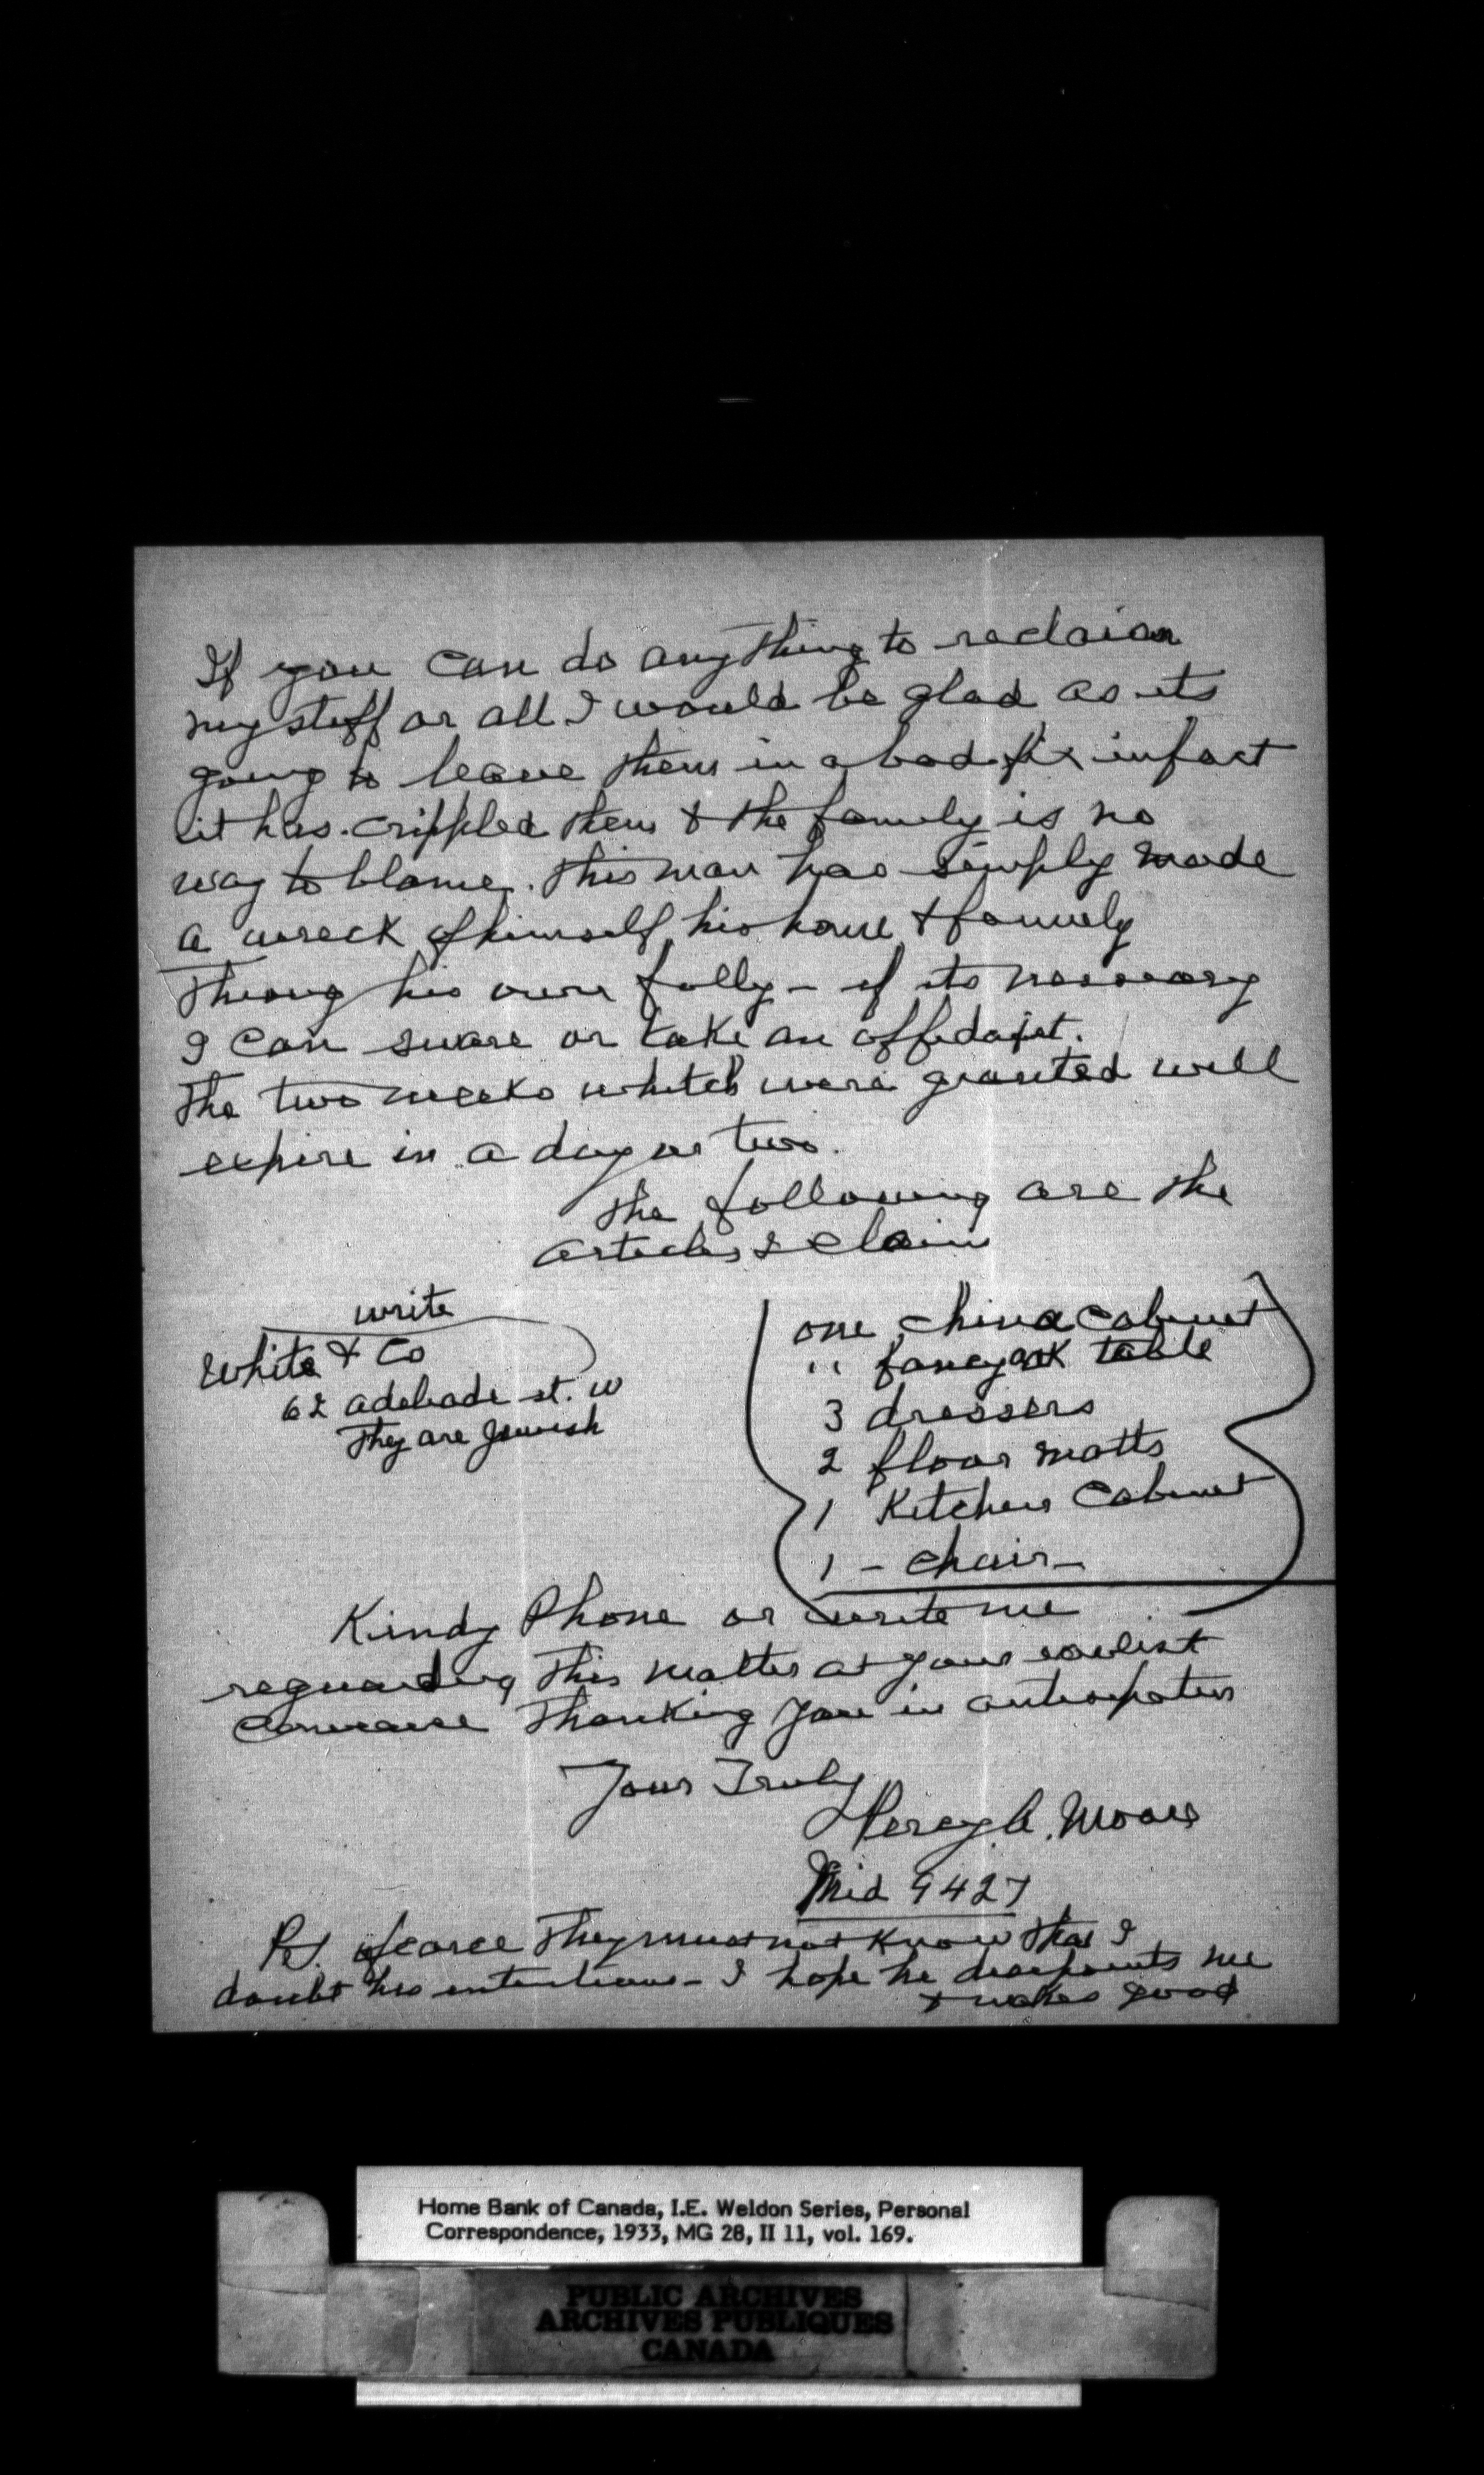 If you can do anything to reclaim
my stuff or all I would be glad as its
going to leave them in a bad fix infact
it has crippled them & the family is no
way to blame. This man has simply made
a wreck of himself, his home & family
Throug his own folly - if its nessary
I can sware or take an affidavit.
The two weeks which were granted will
expire in a day or two.
The following are the
articles I claim
write
White & Co
62 adelaide st. w
They are Jewish
one china cabinet
" fancy oak table
3 dressers
2 floor matts
1 Kitchen Cabinet
1 - chair -
Kindy Phone or write me
reguarding This matter at your earlist
Thanking you in anticipation
Yours Truly
Percy A. Moore
Mid 9427
P.S. of coarse They must not know that I
doubt his intentions - I hope he disapoints me
& makes good
Home Bank of Canada, I.E. Weldon Series, Personal
Correspondence, 1933, MG 28, II 11, vol. 169.
PUBLIC ARCHIVES
ARCHIVES PUBLIQUES
CANADA